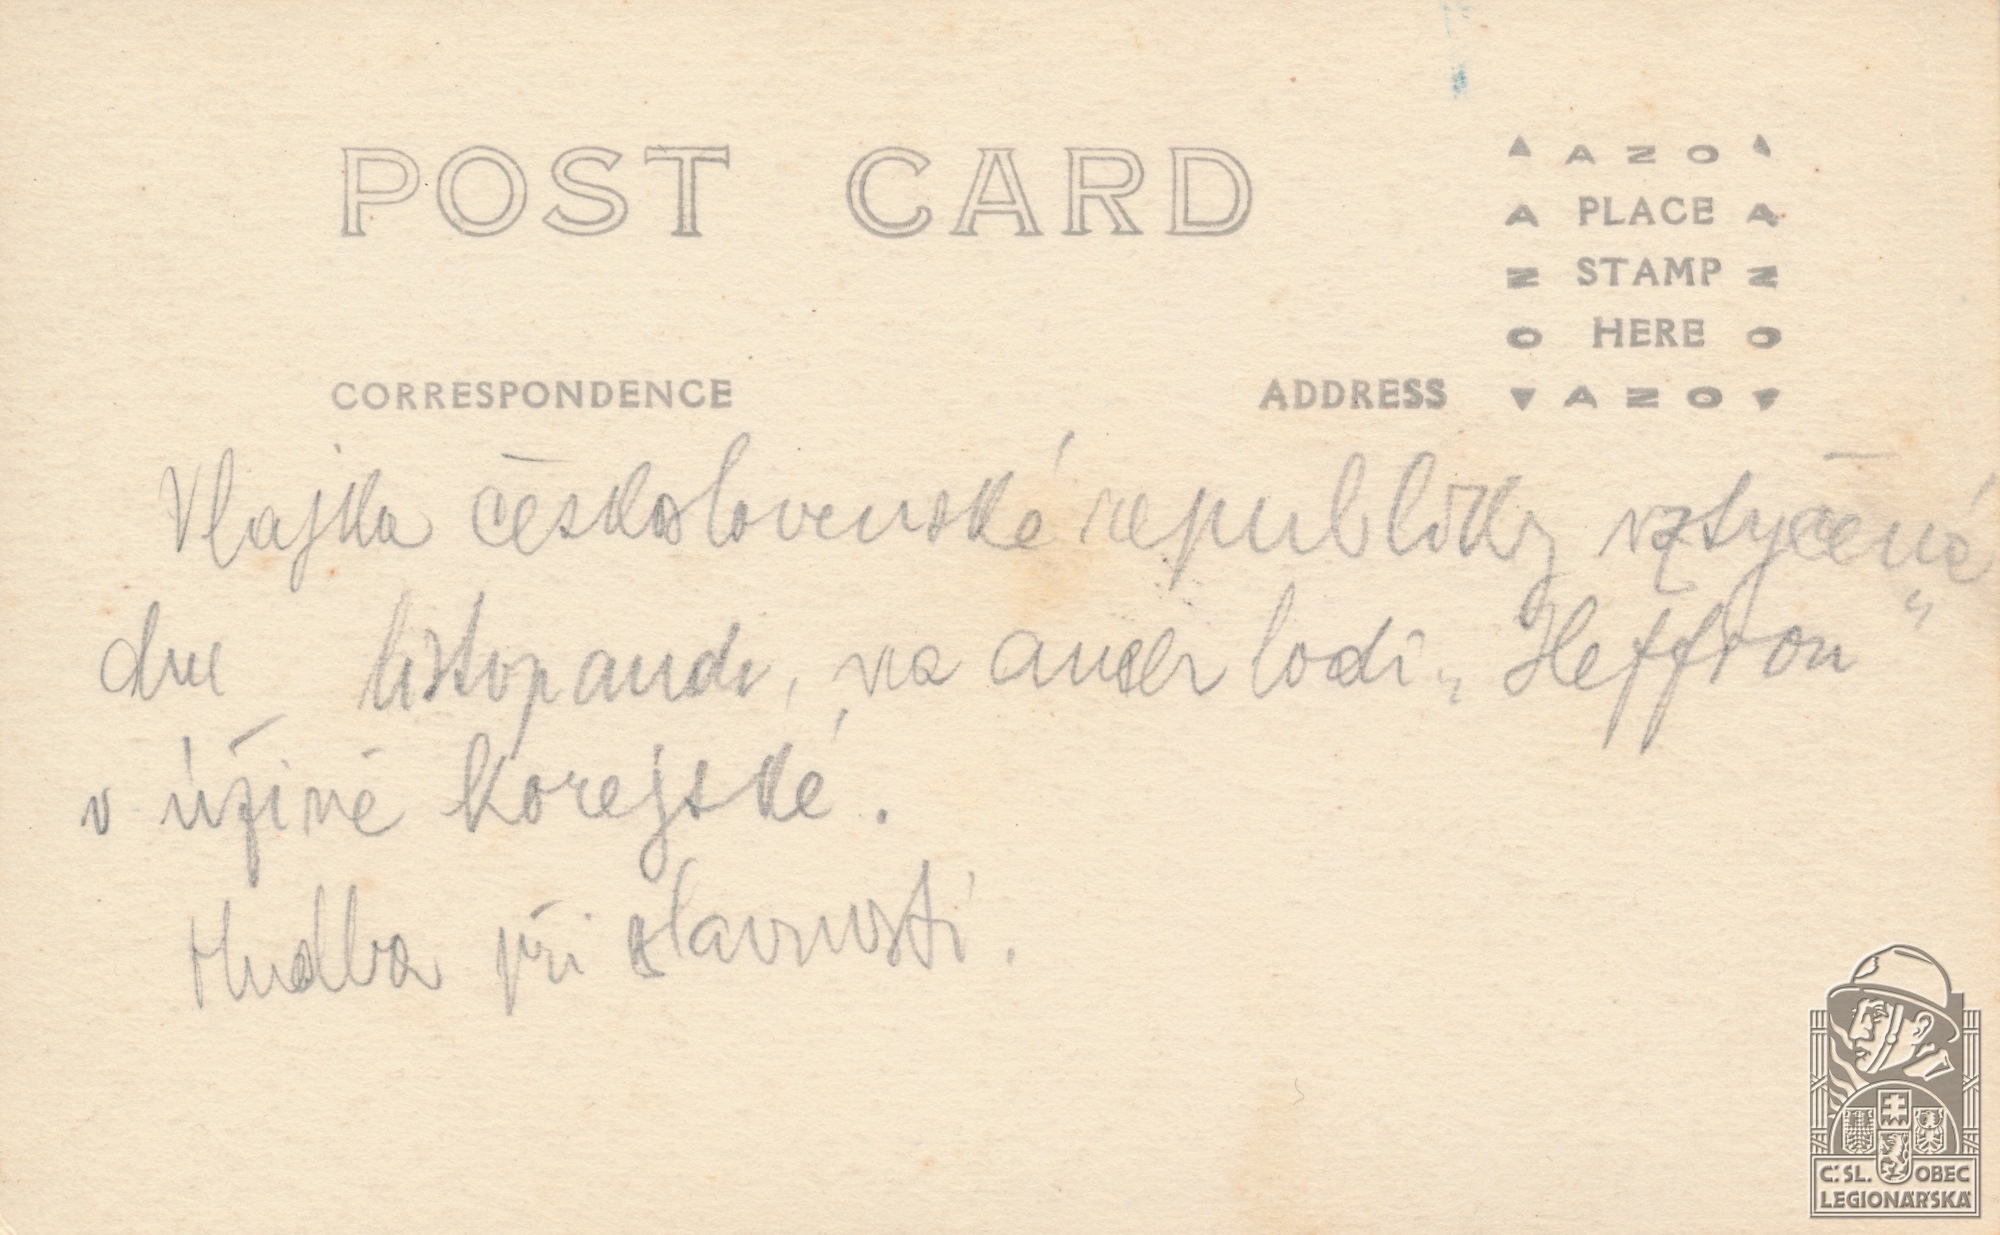 POST CARD
AZO
PLACE
STAMP
HERE
AZO
CORRESPONDENCE
ADDRESS
Vlajka československé republiky vztyčená
dne listopadu, na amer lodi „Heffron"
v úžině korejské.
Hudba při slavnosti.
Č.SL. OBEC
LEGIONÁŘSKÁ